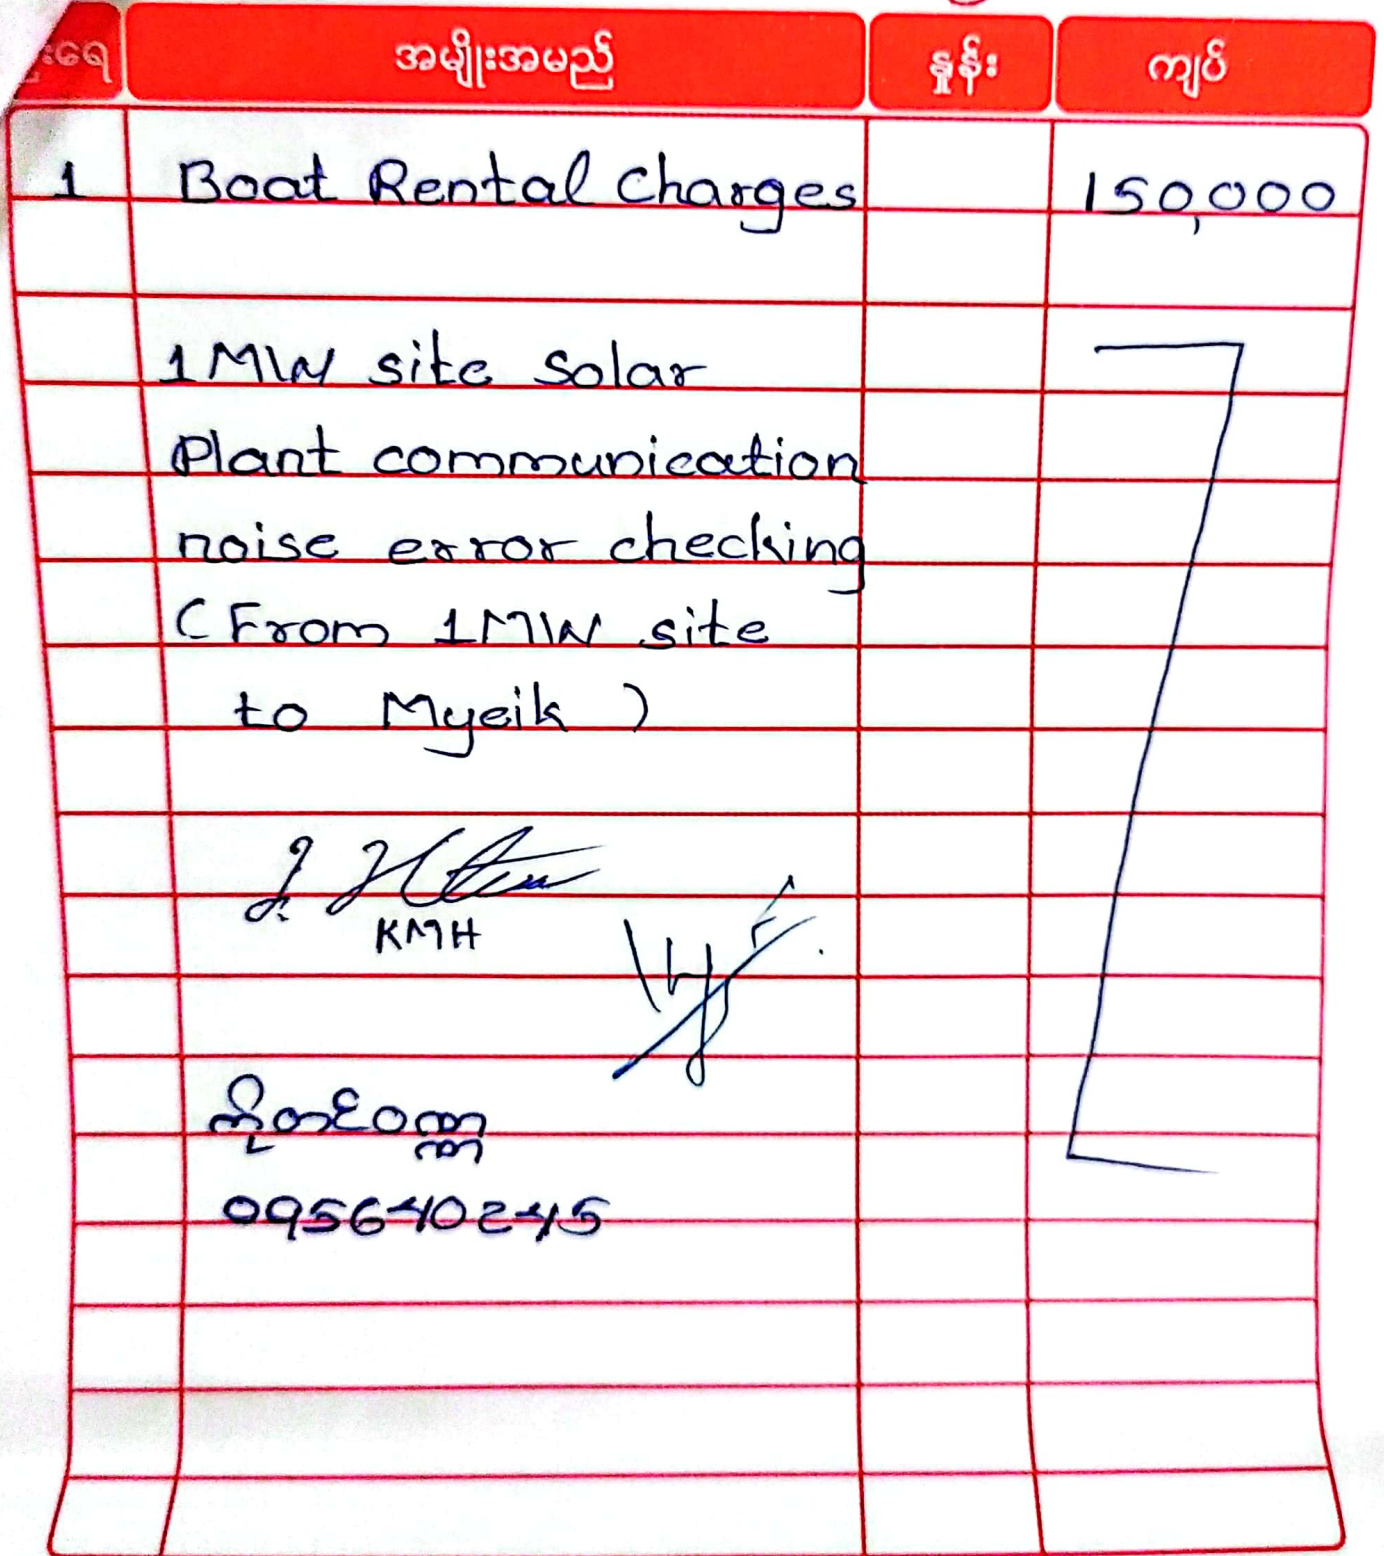 အမျိုးအမည် နှုန်း ကျပ်
1 Boat Rental Charges 150,000
1 MW site Solar
Plant communication
noise error checking
(From 1MW site
to Myeik)
KMH
ကိုတင်ဝဏ္ဏ
095640245